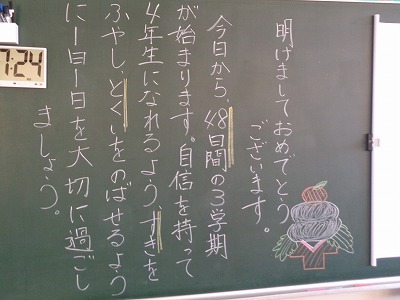 明けましておめでとう
ございます。
今日から、48日間の3学期
が始まります。自信を持って
4年生になれるよう、すきを
ふやし、とくいをのばせるよう
に一日一日を大切に過ごし
ましょう。
7:24